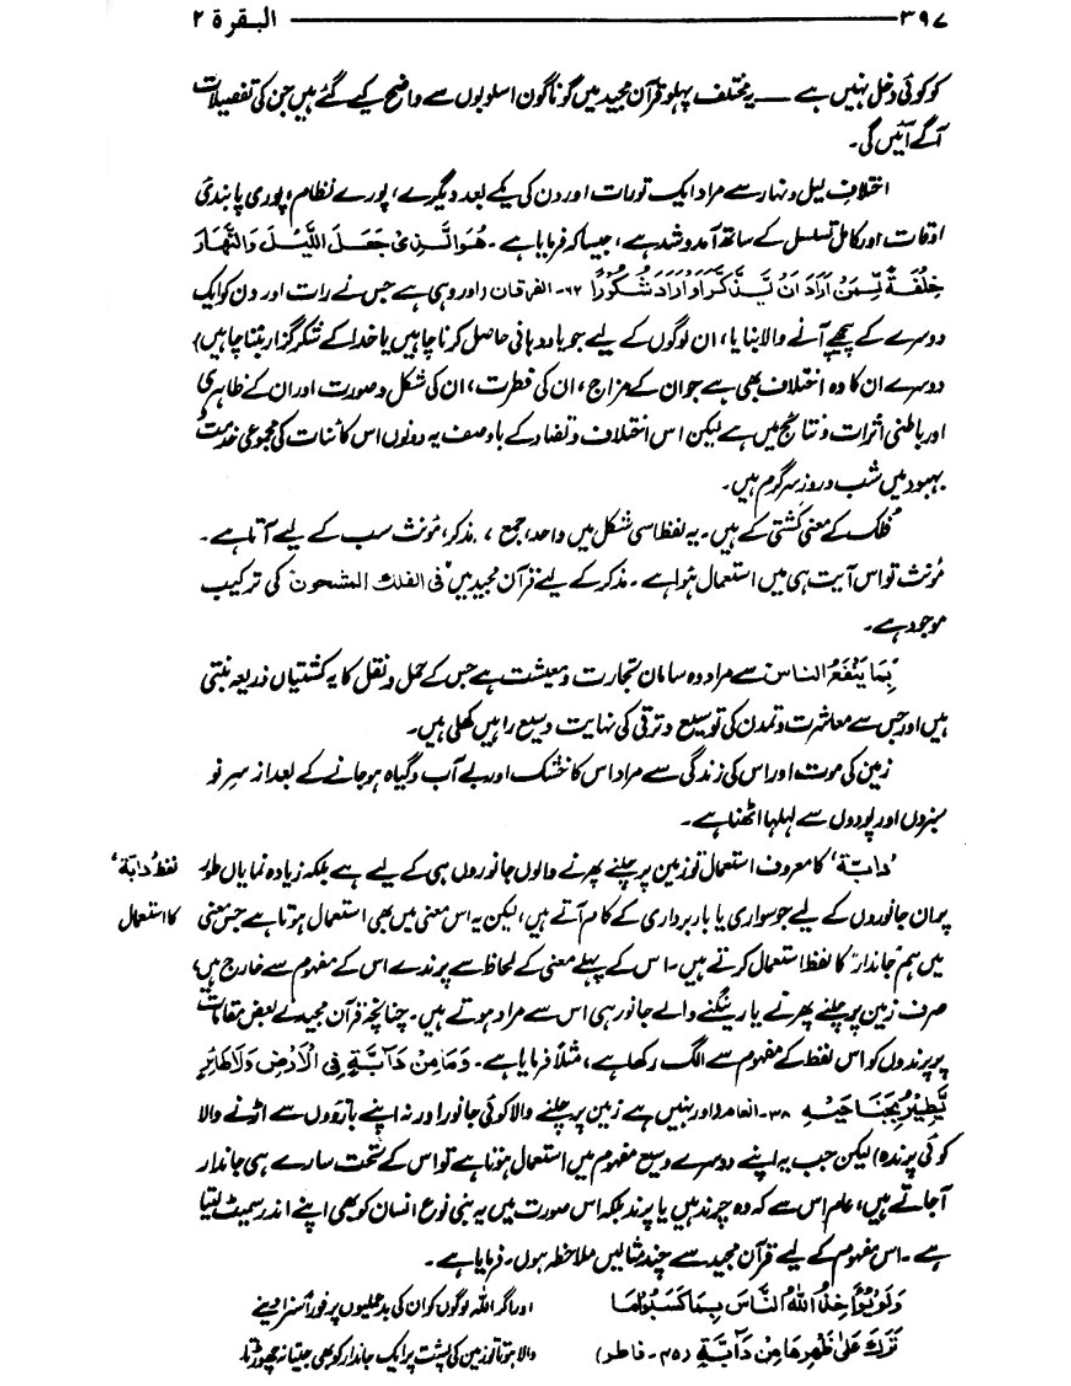 ۳۹۷ البقرة ۲
کو کوئی دخل نہیں ہے — یہ مختلف پہلو قرآن مجید میں گوناگوں اسلوبوں سے واضح کیے گئے ہیں جن کی تفصیلات
آگے آئیں گی۔
اختلافِ لیل و نہار سے مراد ایک تو رات اور دن کی یکے بعد دیگرے، پورے نظام، پوری پابندیٔ
اوقات اور کامل تسلسل کے ساتھ آمد و شد ہے، جیسا کہ فرمایا ہے۔ هُوَ الَّذِیْ جَعَلَ اللَّیْلَ وَالنَّهَارَ
خِلْفَةً لِّمَنْ اَرَادَ اَنْ یَّذَّکَّرَ اَوْ اَرَادَ شُکُوْرًا ۶۲- الفرقان (اور وہی ہے جس نے رات اور دن کو ایک
دوسرے کے پیچھے آنے والا بنایا، ان لوگوں کے لیے جو یاددہانی حاصل کرنا چاہیں یا خدا کے شکرگزار بننا چاہیں)
دوسرے ان کا وہ اختلاف بھی ہے جو ان کے مزاج، ان کی فطرت، ان کی شکل و صورت اور ان کے ظاہری
اور باطنی اثرات و نتائج میں ہے لیکن اس اختلاف و تضاد کے باوصف یہ دونوں اس کائنات کی مجموعی خدمت و
بہبود میں شب و روز سرگرم ہیں۔
فُلک کے معنی کشتی کے ہیں۔ یہ لفظ اسی شکل میں واحد، جمع، مذکر، مؤنث سب کے لیے آتا ہے۔
مؤنث تو اس آیت ہی میں استعمال ہوا ہے۔ مذکر کے لیے قرآن مجید میں 'فی الفلك المشحون' کی ترکیب
موجود ہے۔
بِمَا یَنْفَعُ الناس سے مراد وہ سامان تجارت و معیشت ہے جس کے حمل و نقل کا یہ کشتیاں ذریعہ بنتی
ہیں اور جس سے معاشرت و تمدن کی توسیع و ترقی کی نہایت وسیع راہیں کھلی ہیں۔
زمین کی موت اور اس کی زندگی سے مراد اس کا خشک اور بے آب و گیاہ ہو جانے کے بعد از سرِ نو
سبزوں اور پودوں سے لہلہا اٹھنا ہے۔
'دابّة' کا معروف استعمال تو زمین پر چلنے پھرنے والوں جانوروں ہی کے لیے ہے بلکہ زیادہ نمایاں طور
لفظ 'دابّة'
پر ان جانوروں کے لیے جو سواری یا باربرداری کے کام آتے ہیں، لیکن یہ اس معنی میں بھی استعمال ہوتا ہے جس معنی
کا استعمال
میں ہم 'جاندار' کا لفظ استعمال کرتے ہیں۔ اس کے پہلے معنی کے لحاظ سے پرندے اس کے مفہوم سے خارج ہیں،
صرف زمین پر چلنے پھرنے یا رینگنے والے جانور ہی اس سے مراد ہوتے ہیں۔ چنانچہ قرآن مجید نے بعض مقامات
پر پرندوں کو اس لفظ کے مفہوم سے الگ رکھا ہے، مثلاً فرمایا ہے۔ وَمَا مِنْ دَآبَّةٍ فِی الْاَرْضِ وَلَا طَائِرٍ
یَّطِیْرُ بِجَنَاحَیْهِ ۳۸- انعام (اور نہیں ہے زمین پر چلنے والا کوئی جانور اور نہ اپنے بازوؤں سے اڑنے والا
کوئی پرندہ) لیکن جب یہ اپنے دوسرے وسیع مفہوم میں استعمال ہوتا ہے تو اس کے تحت سارے ہی جاندار
آ جاتے ہیں، عام اس سے کہ وہ چرند ہیں یا پرند بلکہ اس صورت میں یہ بنی نوع انسان کو بھی اپنے اندر سمیٹ لیتا
ہے۔ اس مفہوم کے لیے قرآن مجید سے چند مثالیں ملاحظہ ہوں۔ فرمایا ہے۔
وَلَوْ یُؤَاخِذُ اللّٰهُ النَّاسَ بِمَا کَسَبُوْا مَا
تَرَكَ عَلٰی ظَهْرِهَا مِنْ دَآبَّةٍ (۴۵- فاطر)
اور اگر اللہ لوگوں کو ان کی بدعملیوں پر فوراً سزا دینے
والا ہوتا تو زمین کی پشت پر ایک جاندار کو بھی جیتا نہ چھوڑتا۔